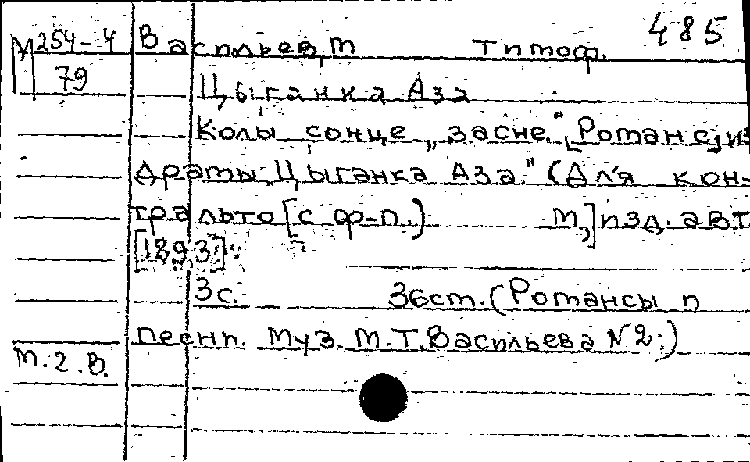 485
М 254-4
79
Васильев, М Тимоф.
Цыганка Аза
Колы сонце „засне." [Романс из
драмы „Цыганка Аза." (Для кон-
тральто [с ф-п.) М,] изд. авт
[1893]
3с. 36ст. (Романсы и
песни. Муз. М.Т. Васильева №2.)
т.2.В.